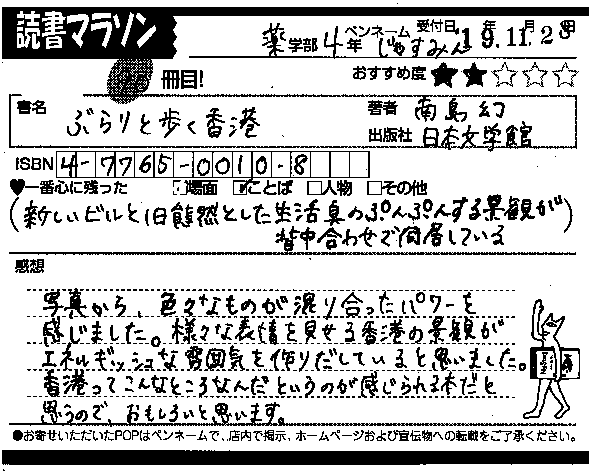 読書マラソン
薬学部 4年 ペンネーム じゃすみん 受付日 '19年.11月.28日
冊目!
おすすめ度 ★★☆☆☆
書名 ぶらりと歩く香港
著者 南島幻
出版社 日本文学館
ISBN 4-7765-0010-8
♥一番心に残った □場面 ☑ことば □人物 □その他
(新しいビルと旧態然とした生活臭のぷんぷんする景観が
背中合わせで同居している)
感想
写真から、色々なものが混り合ったパワーを
感じました。様々な表情を見せる香港の景観が
エネルギッシュな雰囲気を作りだしていると思いました。
香港ってこんなところなんだというのが感じられる本だと
思うので、おもしろいと思います。
●お寄せいただいたPOPはペンネームで、店内で掲示、ホームページおよび宣伝物への転載をご了承ください。